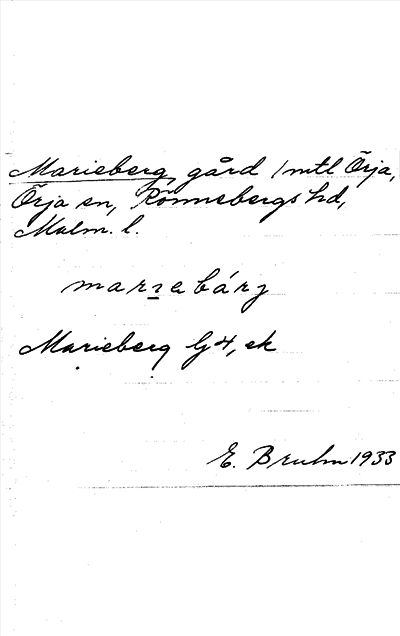 Marieberg, gård 1 mtl Örja,
Örja sn, Rönnebergs hd,
Malm. l.
marɪebárj
Marieberg Gj4, ek
E. Bruhn 1933